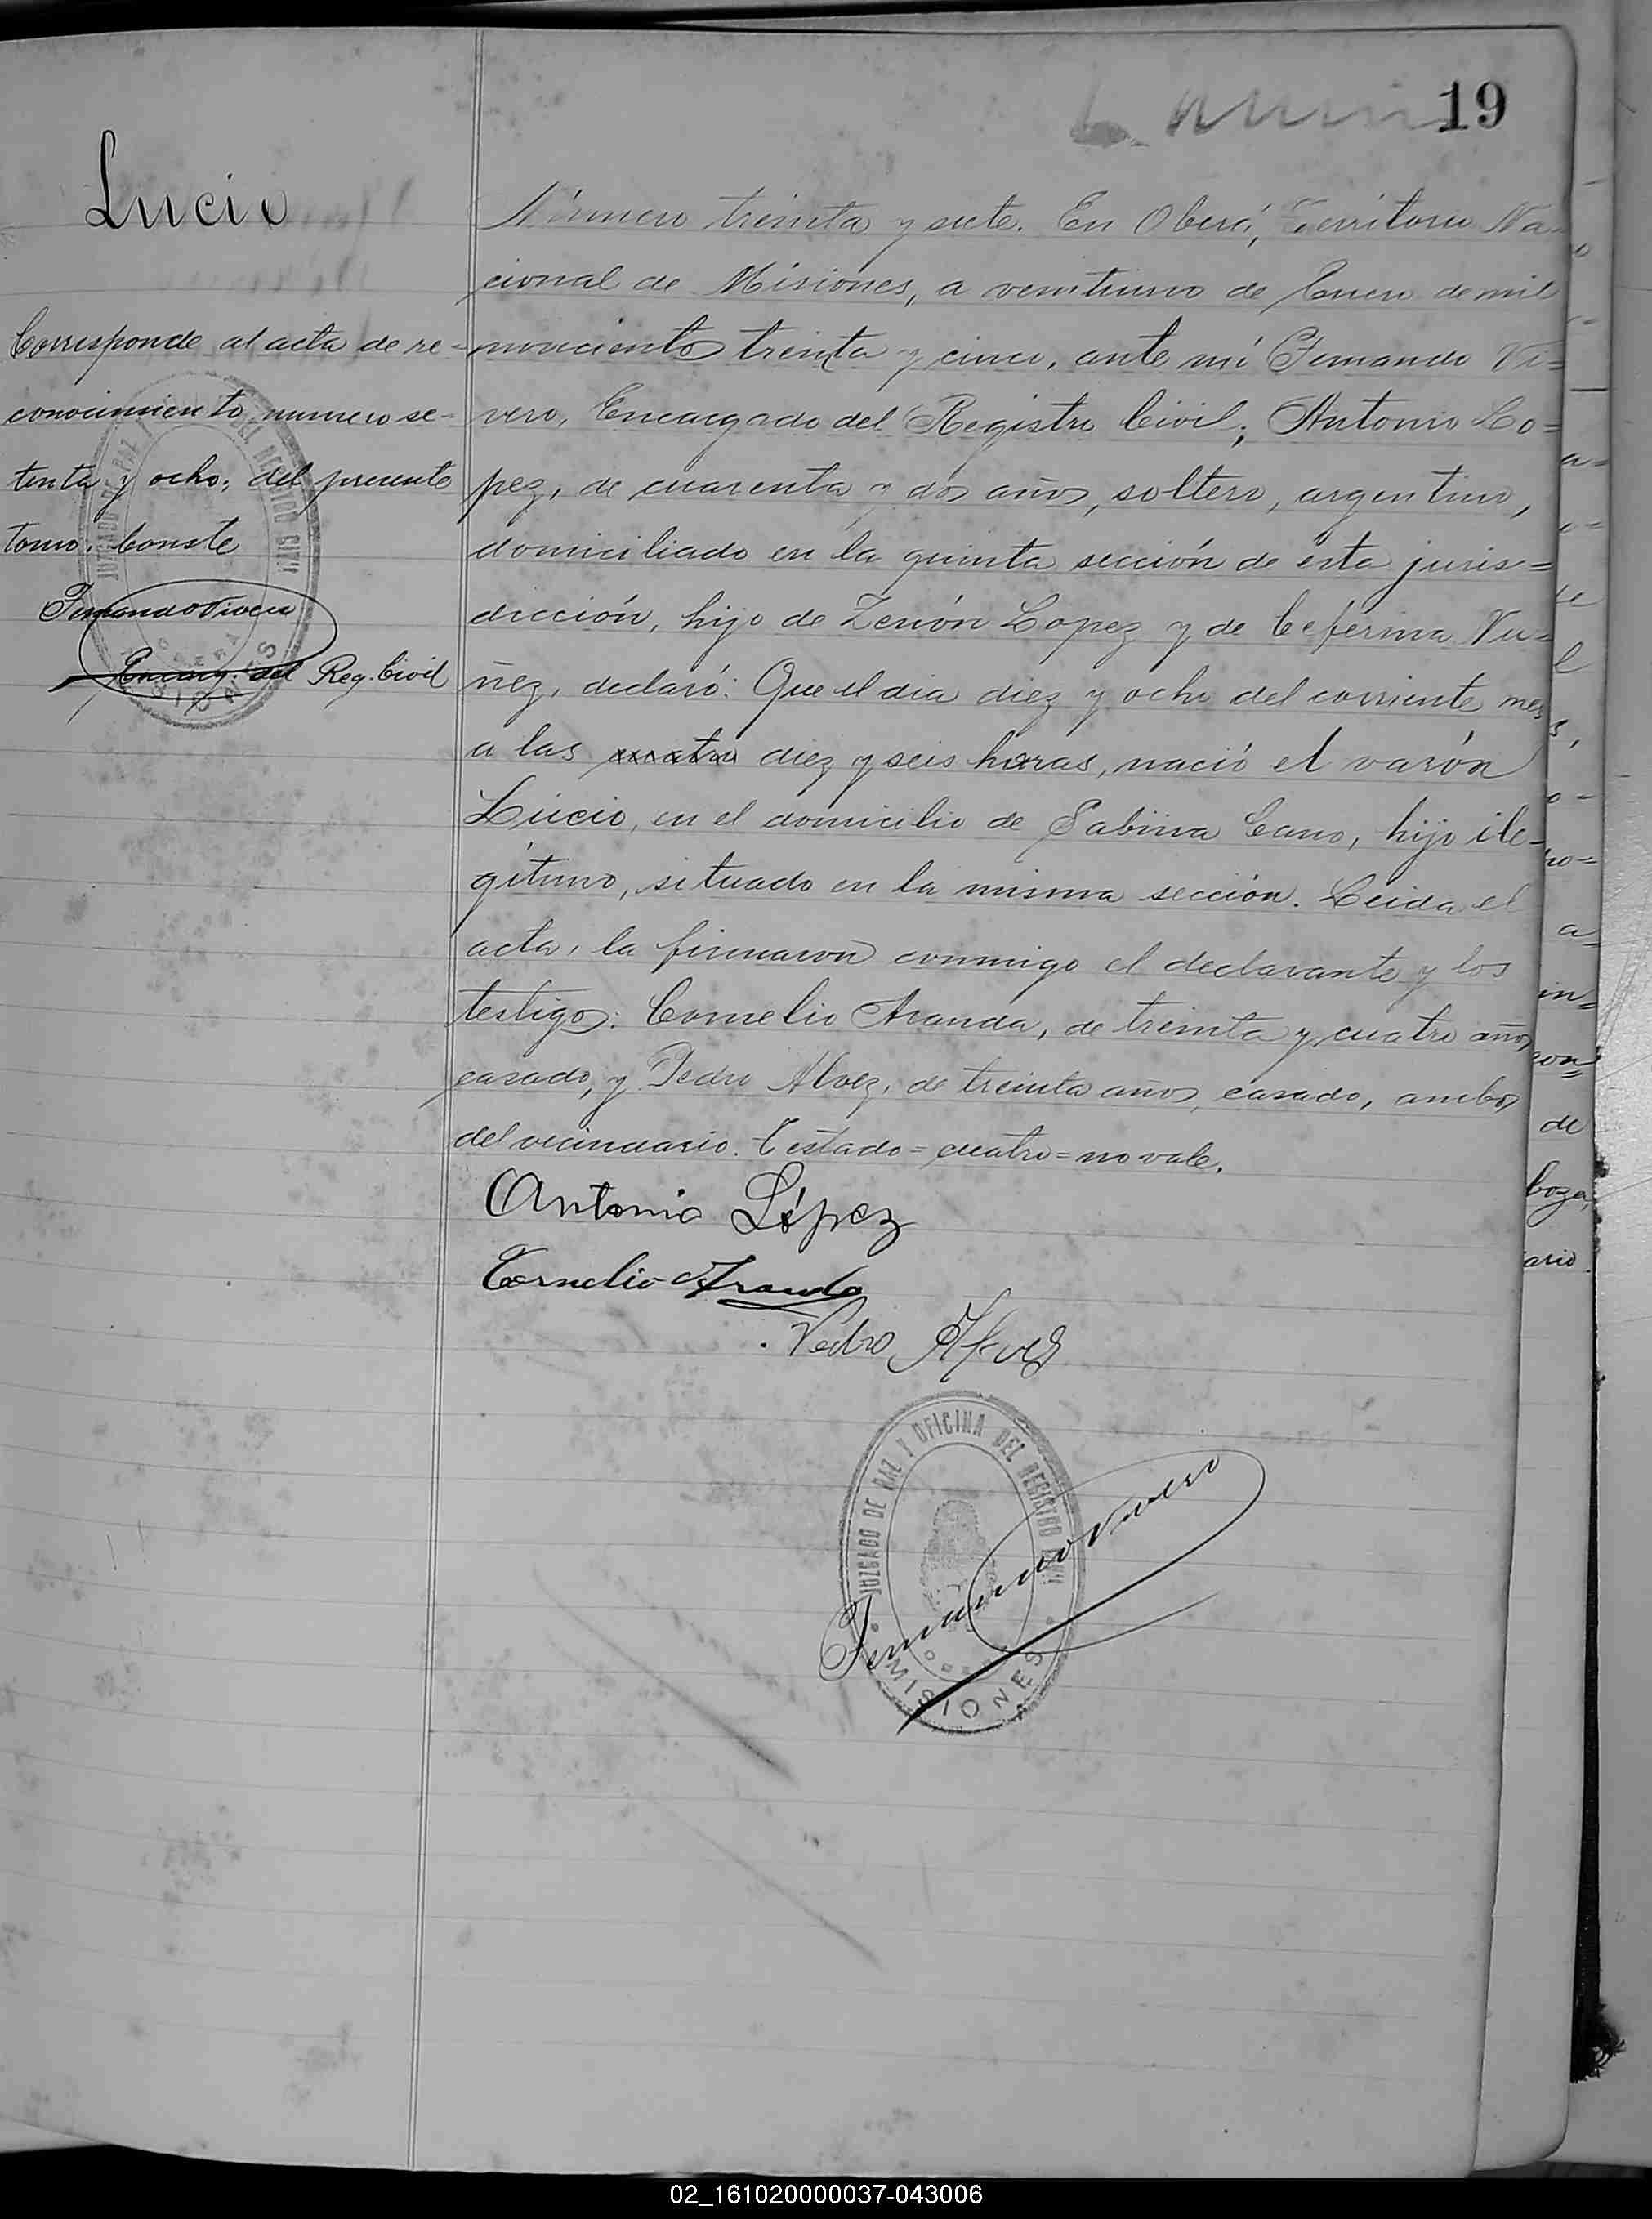 19
Lucio
Número treinta y siete. En Oberá, Territorio Na-
cional de Misiones, a veintiuno de Enero de mil
novecientos treinta y cinco, ante mí Fernando Vi=
vero, Encargado del Registro Civil; Antonio Lo=
pez, de cuarenta y dos años, soltero, argentino,
domiciliado en la quinta sección de esta juris=
dicción, hijo de Zenón Lopez y de Ceferina Nu=
ñez, declaró: Que el dia diez y ocho del corriente mes
a las cuatro diez y seis horas, nació el varón
Lucio, en el domicilio de Sabina Cano, hijo ile-
gítimo, situado en la misma sección. Leida el
acta, la firmaron conmigo el declarante y los
testigos: Cornelio Aranda, de treinta y cuatro años
casado, y Pedro Alvez, de treinta años, casado, ambos
del vecindario. Testado=cuatro=no vale.
Antonio López
Cornelio Aranda
Pedro Alves
JUZGADO DE PAZ Y OFICINA DEL REGISTRO CIVIL
MISIONES
Fernando Vivero
Corresponde al acta de re=
conocimiento numero se-
tenta y ocho, del presente
tomo. Conste
Fernando Vivero
Encarg. del Reg. Civil
JUZGADO DE PAZ Y DEL REGISTRO CIVIL
OBERA
MISIONES
a=
o=
te
el
s,
o-
ro=
a=
in=
con=
de
boza,
ario.
02_161020000037-043006